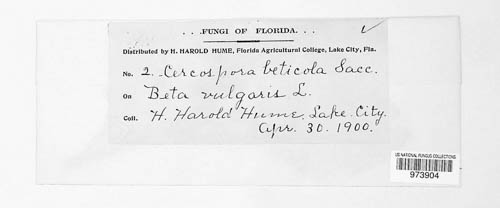 . . .FUNGI OF FLORIDA. . .
Distributed by H. HAROLD HUME, Florida Agricultural College, Lake City, Fla.
No. 2. Cercospora beticola Sacc.
On Beta vulgaris L.
Coll. H. Harold Hume, Lake City.
Apr. 30. 1900.
US NATIONAL FUNGUS COLLECTIONS
973904